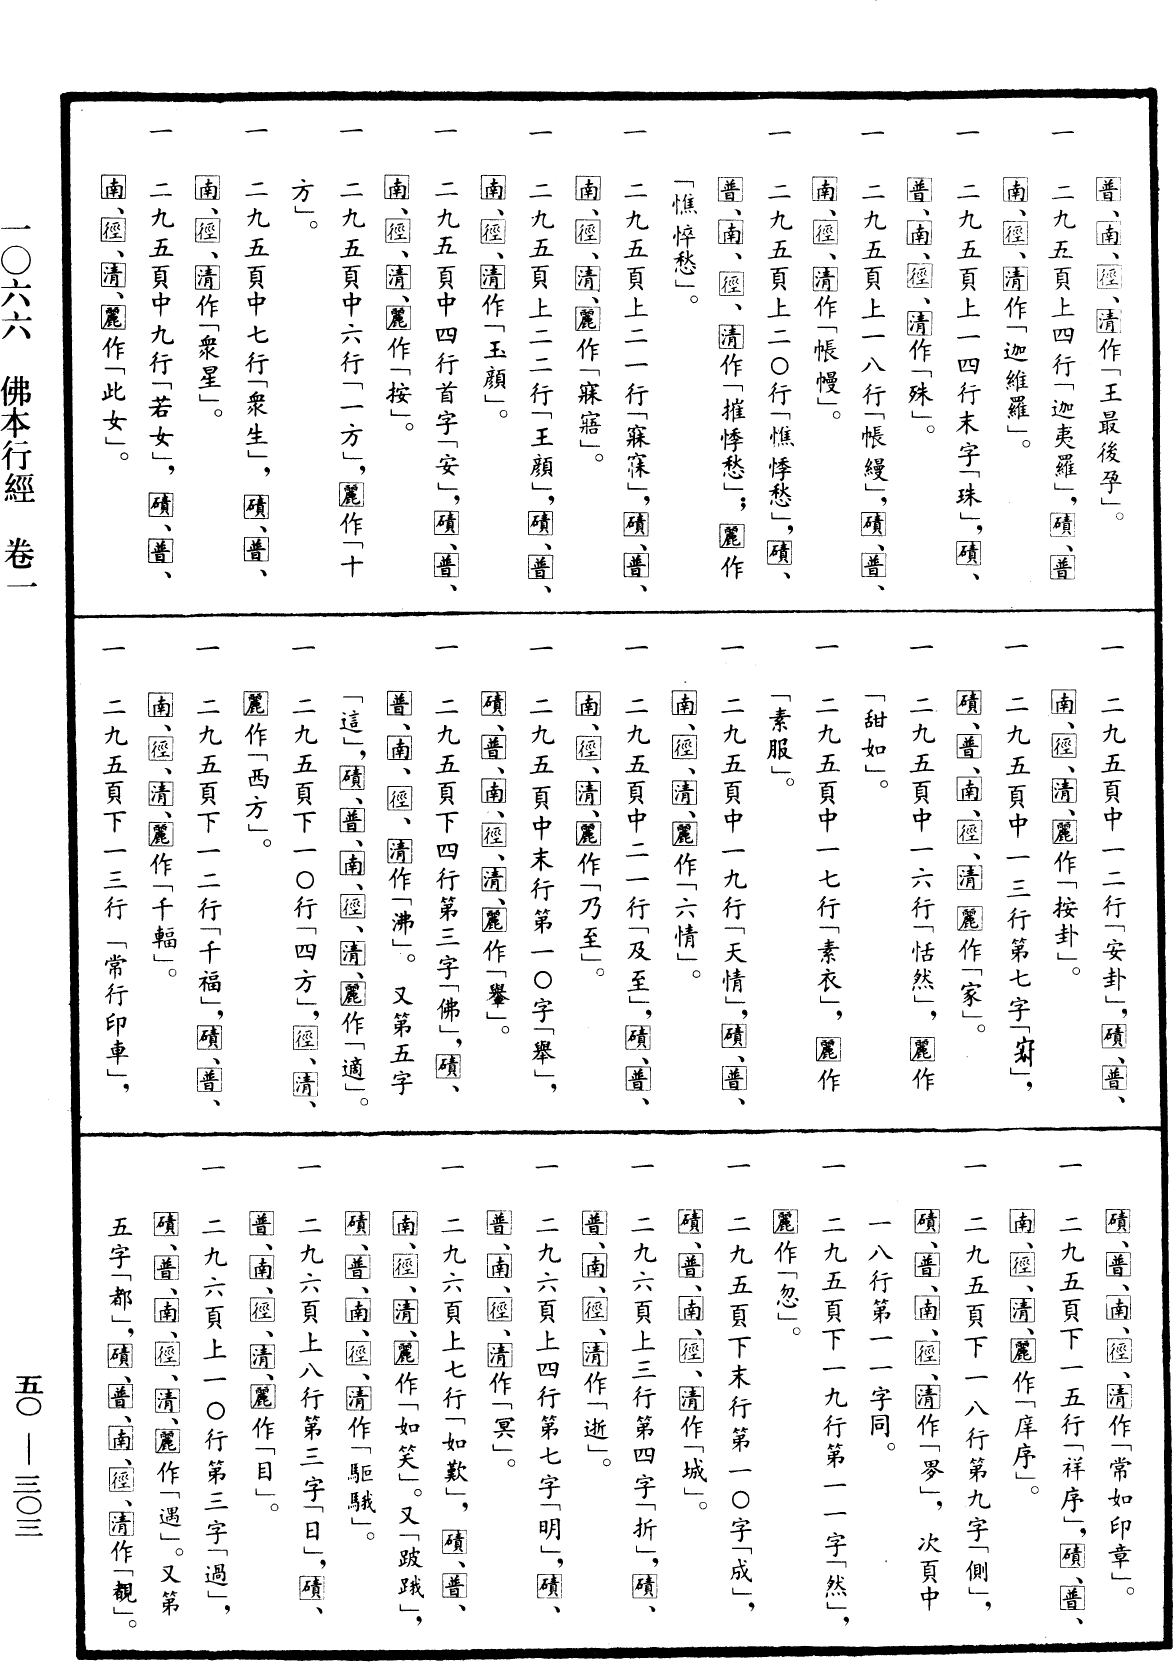 普、南、徑、清作「王最後孕」。
一　二九五頁上四行「迦夷羅」，磧、普
南、徑、清作「迦維羅」。
一　二九五頁上一四行末字「珠」，磧、
普、南、徑、清作「殊」。
一　二九五頁上一八行「帳縵」，磧、普、
南、徑、清作「帳幔」。
一　二九五頁上二〇行「憔悸愁」，磧、
普、南、徑、清作「摧悸愁」；麗作
「憔悴愁」。
一　二九五頁上二一行「寐寐」，磧、普、
南、徑、清、麗作「寐寤」。
一　二九五頁上二二行「王顏」，磧、普、
南、徑、清作「玉顏」。
一　二九五頁中四行首字「安」，磧、普、
南、徑、清、麗作「按」。
一　二九五頁中六行「一方」，麗作「十
方」。
一　二九五頁中七行「衆生」，磧、普、
南、徑、清作「衆星」。
一　二九五頁中九行「若女」，磧、普、
南、徑、清、麗作「此女」。
一　二九五頁中一二行「安卦」，磧、普、
南、徑、清、麗作「按卦」。
一　二九五頁中一三行第七字「」，
磧、普、南、徑、清 麗作「家」。
一　二九五頁中一六行「恬然」，麗作
「甜如」。
一　二九五頁中一七行「素衣」，麗作
「素服」。
一　二九五頁中一九行「天情」，磧、普、
南、徑、清、麗作「六情」。
一　二九五頁中二一行「及至」，磧、普、
南、徑、清、麗作「乃至」。
一　二九五頁中末行第一〇字「舉」，
磧、普、南、徑、清、麗作「轝」。
一　二九五頁下四行第三字「佛」，磧、
普、南、徑、清作「沸」。又第五字
「這」，磧、普、南、徑、清、麗作「適」。
一　二九五頁下一〇行「四方」，徑、清、
麗作「西方」。
一　二九五頁下一二行「千福」，磧、普、
南、徑、清、麗作「千輻」。
一　二九五頁下一三行「常行印車」，
磧、普、南、徑、清作「常如印章」。
一　二九五頁下一五行「祥序」，磧、普、
南、徑、清、麗作「庠序」。
一　二九五頁下一八行第九字「側」，
磧、普、南、徑、清作「畟」，次頁中
一八行第一一字同。
一　二九五頁下一九行第一一字「然」，
麗作「忽」。
一　二九五頁下末行第一〇字「成」，
磧、普、南、徑、清作「城」。
一　二九六頁上三行第四字「折」，磧、
普、南、徑、清作「逝」。
一　二九六頁上四行第七字「明」，磧、
普、南、徑、清作「冥」。
一　二九六頁上七行「如歎」，磧、普、
南、徑、清、麗作「如笑」。又「跛跤」，
磧、普、南、徑、清作「駊騀」。
一　二九六頁上八行第三字「日」，磧、
普、南、徑、清、麗作「目」。
一　二九六頁上一〇行第三字「過」，
磧、普、南、徑、清、麗作「遇」。又第
五字「都」，磧、普、南、徑、清作「覩」。
一〇六六　佛本行經　卷一
五〇—三〇三